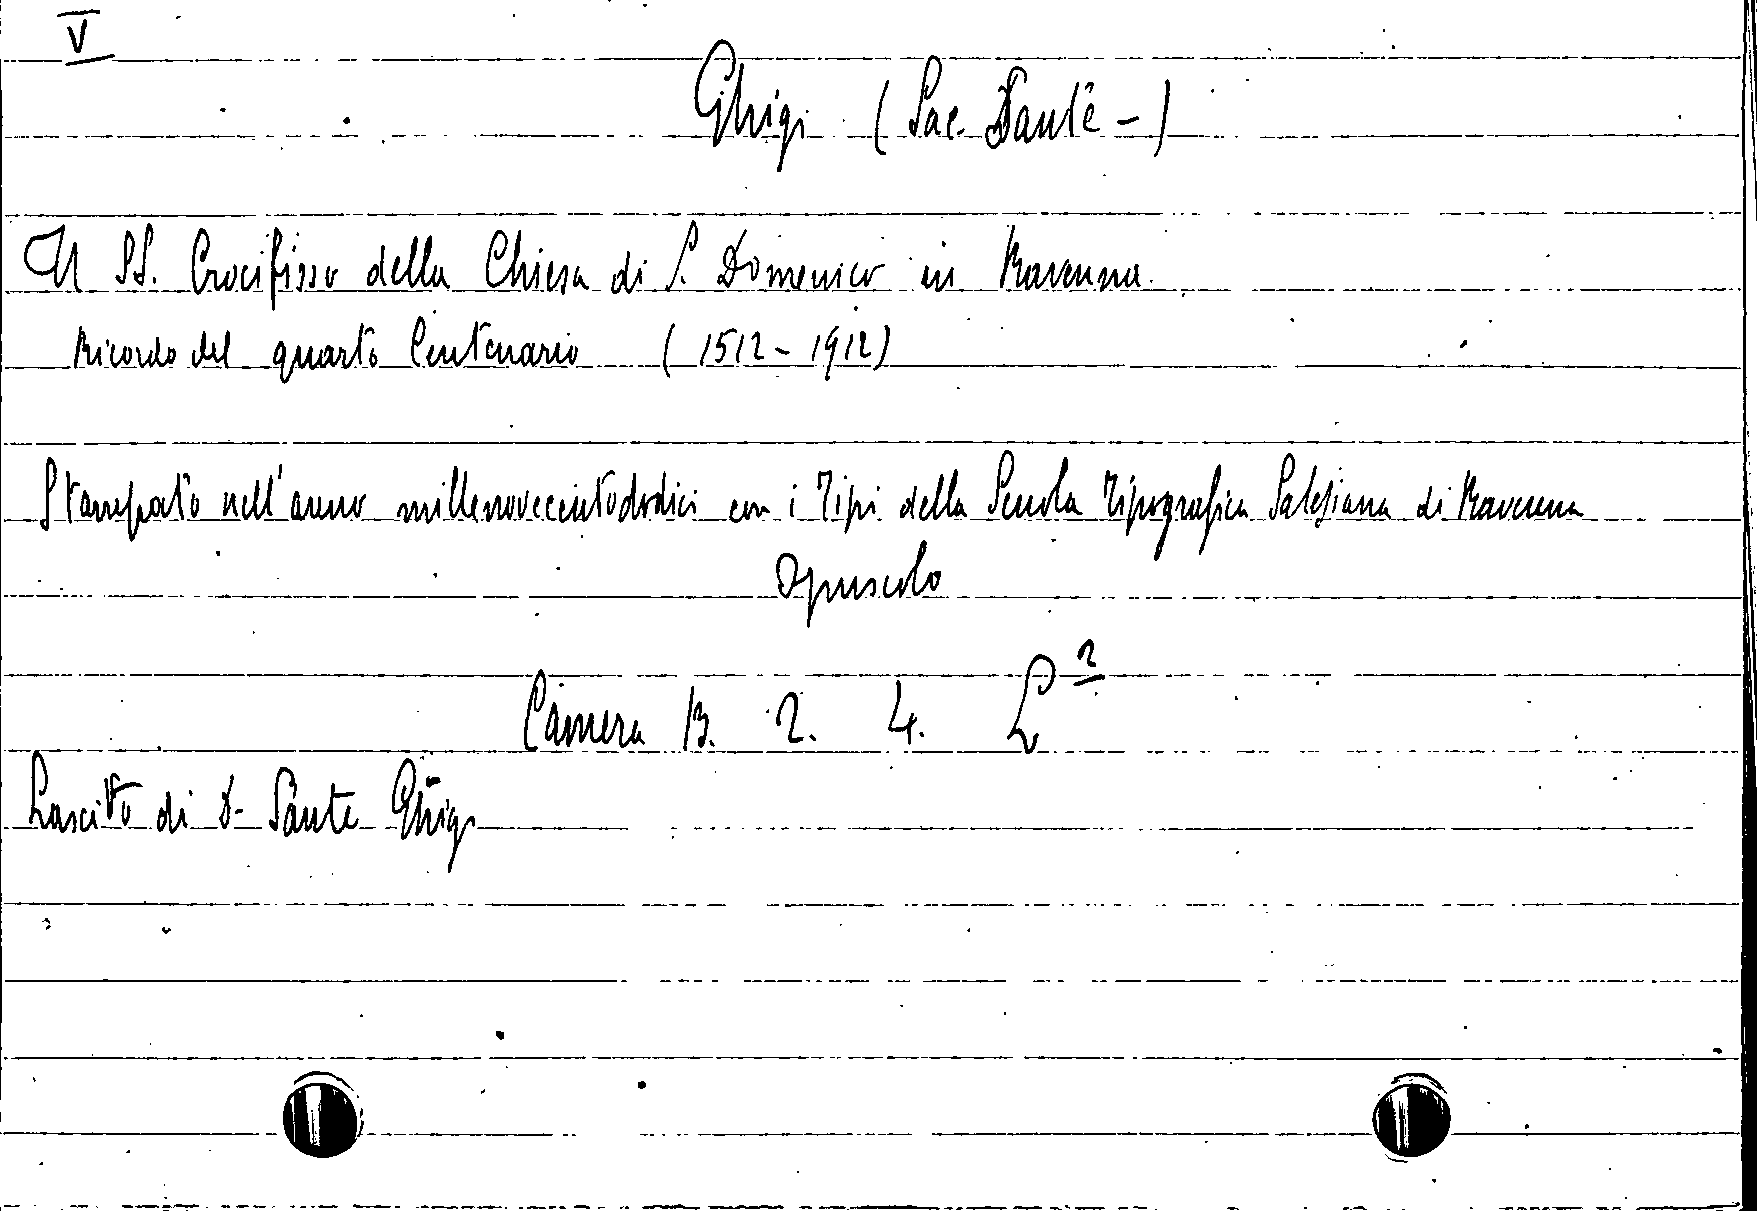 V
Ghigi (Sac. Sante -)
Il SS. Crocifisso della Chiesa di S. Domenico in Ravenna.
Ricordo del quarto Centenario (1512 - 1912)
Stampato nell'anno millenovecentododici con i Tipi della Scuola Tipografica Salesiana di Ravenna
Opuscolo
Camera B. 2. 4. L 2
Lascito di D. Sante Ghigi